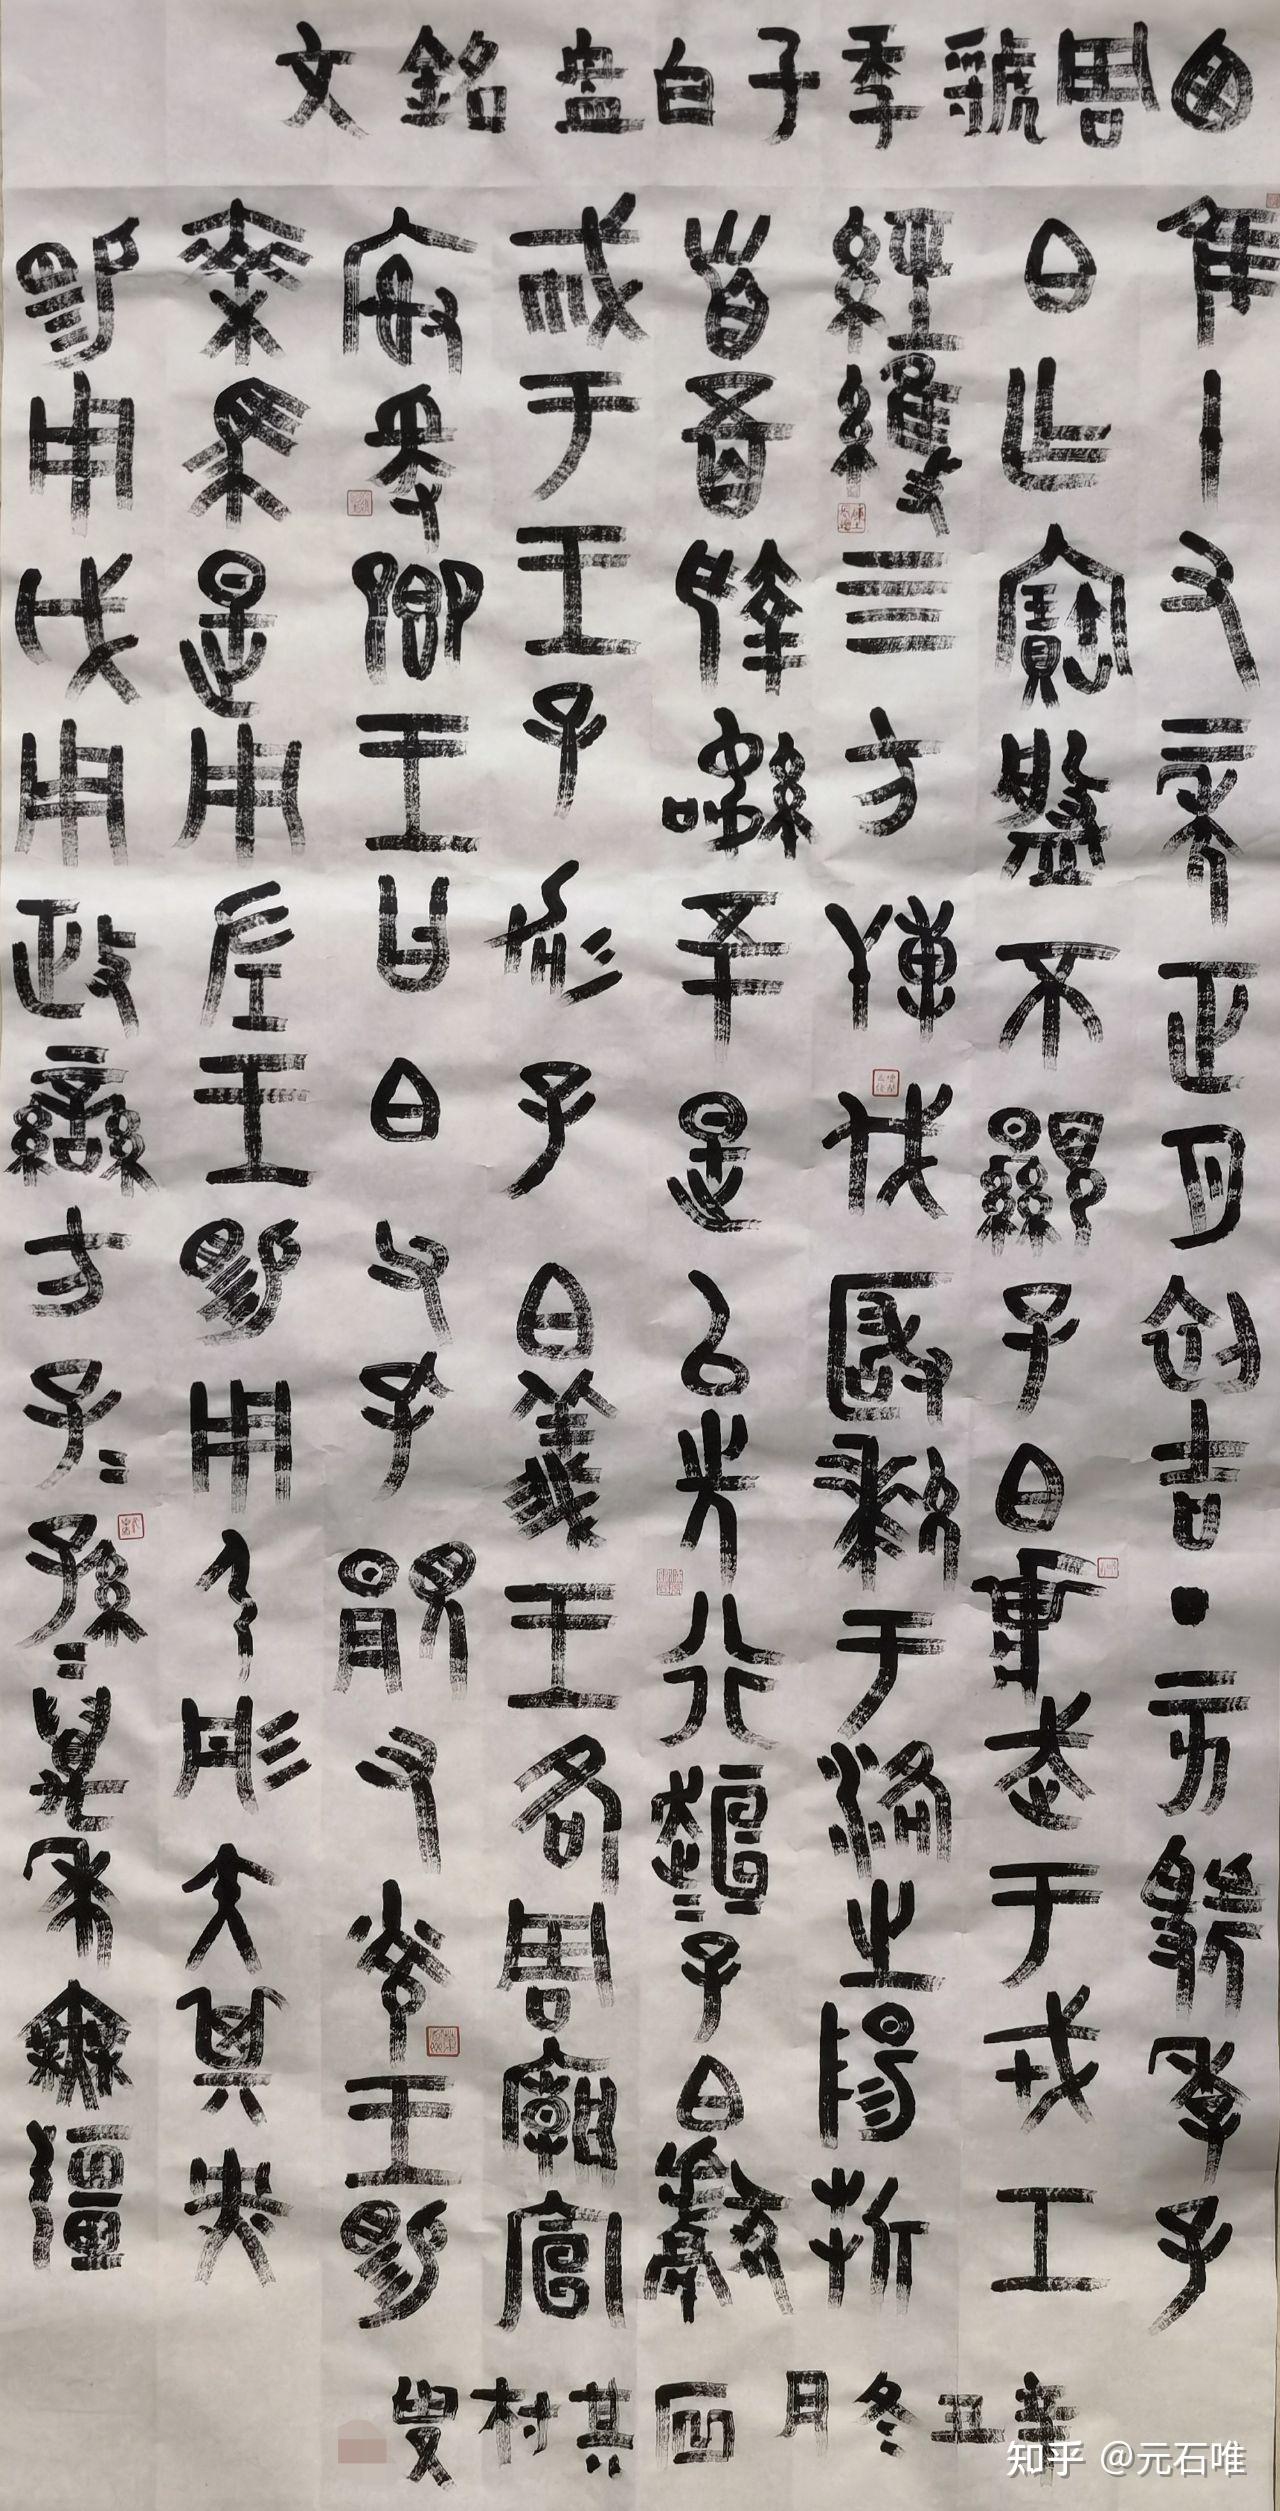 周虢季子白盘銘文
隹十又二年正月初吉丁亥虢季子
白乍寶盤不顯子白武于戎工
經維四方搏伐玁狁于洛之陽折
首五百執訊五十是以先行桓=子白獻
馘于王孔加子白義王各周廟宣
廚爰卿王曰白父孔顯又光王睗
乘馬是用左王睗用弓彤矢其央
睗用戉用政蠻方子=孫=萬年無疆
辛丑冬月其村叟
知乎 @元石唯